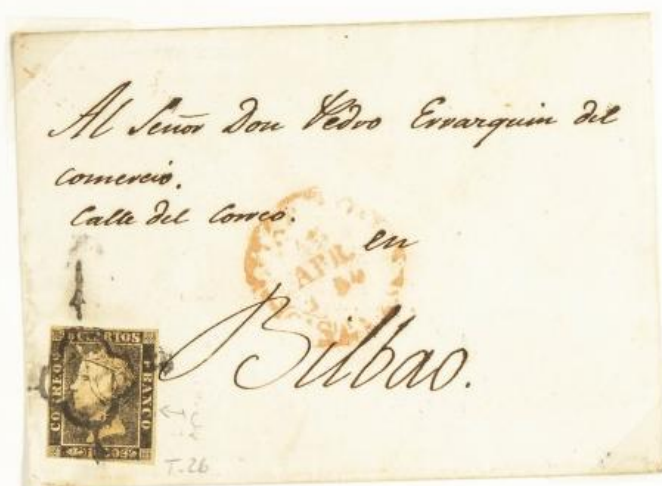 Al Señor Don Pedro Errarquin del
comercio.
Calle del Correo.
en
Bilbao.
APR
CORREOS
FRANCO
T.26